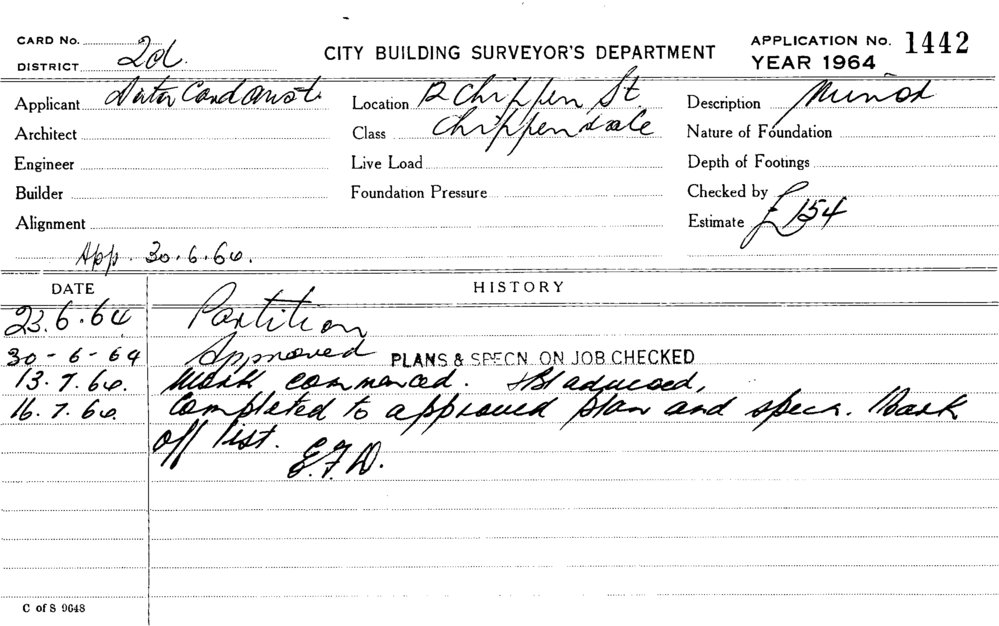 CARD No.
DISTRICT 2d.
CITY BUILDING SURVEYOR'S DEPARTMENT
APPLICATION No. 1442
YEAR 1964
Applicant
Location 12 Chippen St.
Description Minor
Architect
Class Chippendale
Nature of Foundation
Engineer
Live Load
Depth of Footings
Builder
Foundation Pressure
Checked by
Alignment
Estimate £154
App. 30.6.64.
DATE HISTORY
23.6.64 Partition
30-6-64 Approved PLANS & SPECN. ON JOB CHECKED
13.7.64. Work commenced. advised.
16.7.64. Completed to approved plan and specn. Mark
off list. E.F.D.
C of S 9648